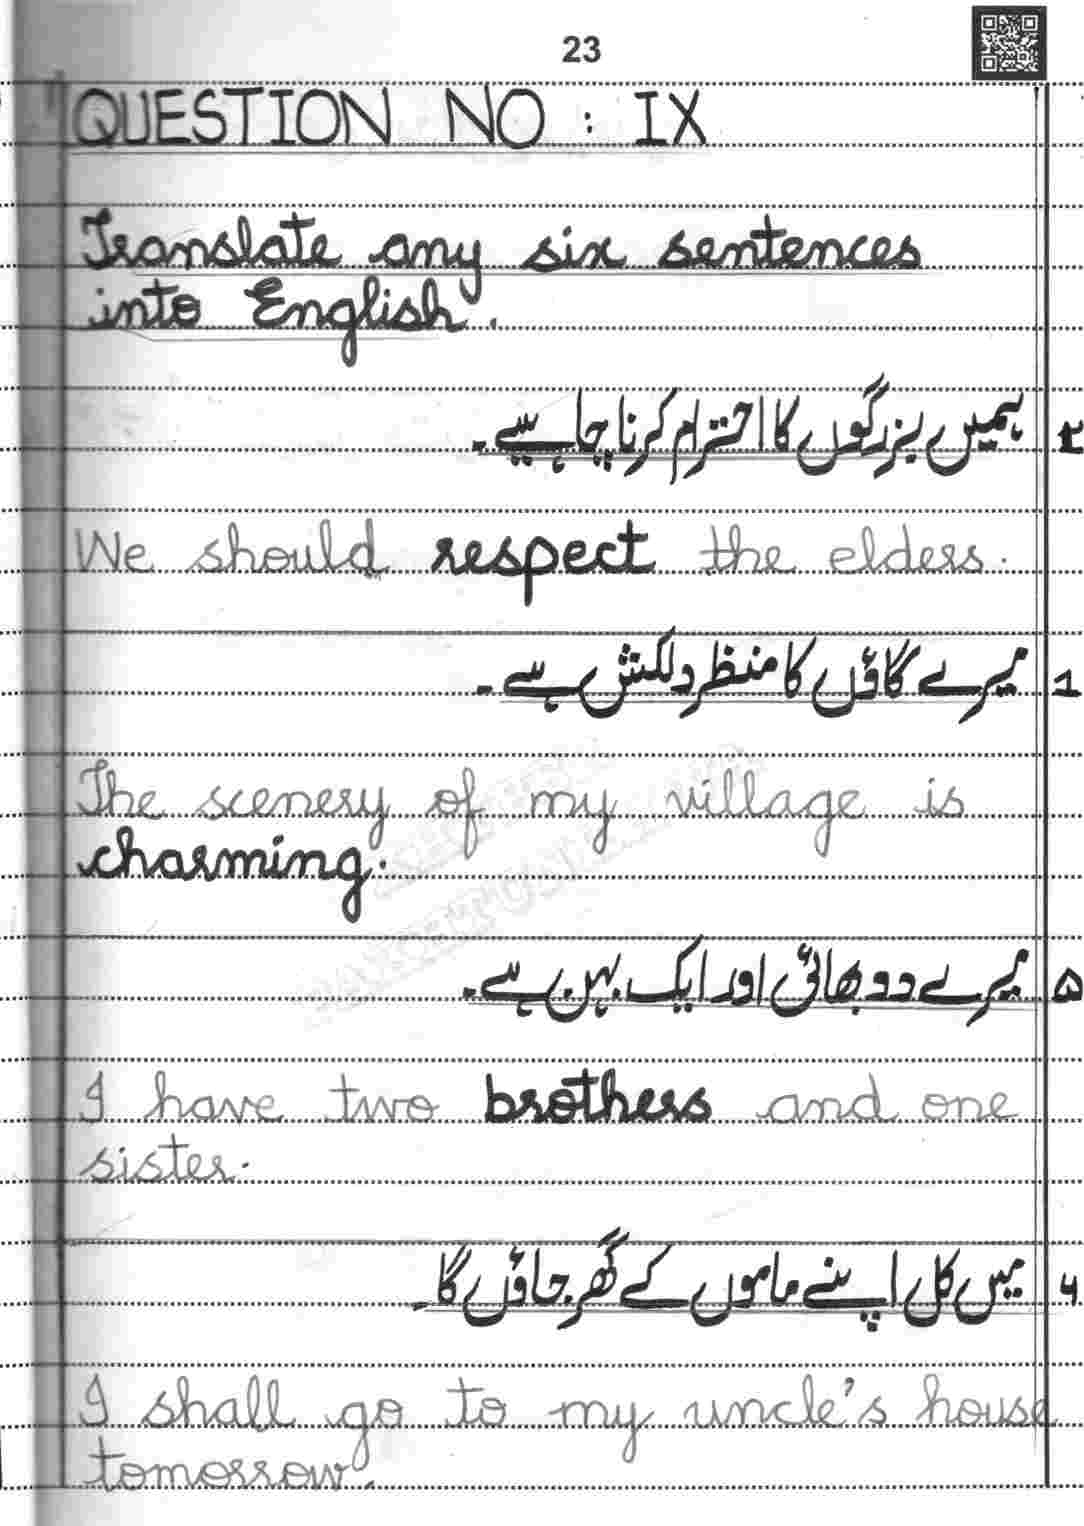 23
QUESTION NO : IX
Translate any six sentences
into English.
۲ ہمیں بزرگوں کا احترام کرنا چاہیے۔
We should respect the elders.
1 میرے گاؤں کا منظر دلکش ہے۔
The scenery of my village is
charming.
۵ میرے دو بھائی اور ایک بہن ہے۔
I have two brothers and one
sister.
۶ میں کل اپنے ماموں کے گھر جاؤں گا۔
I shall go to my uncle's house
tomorrow.